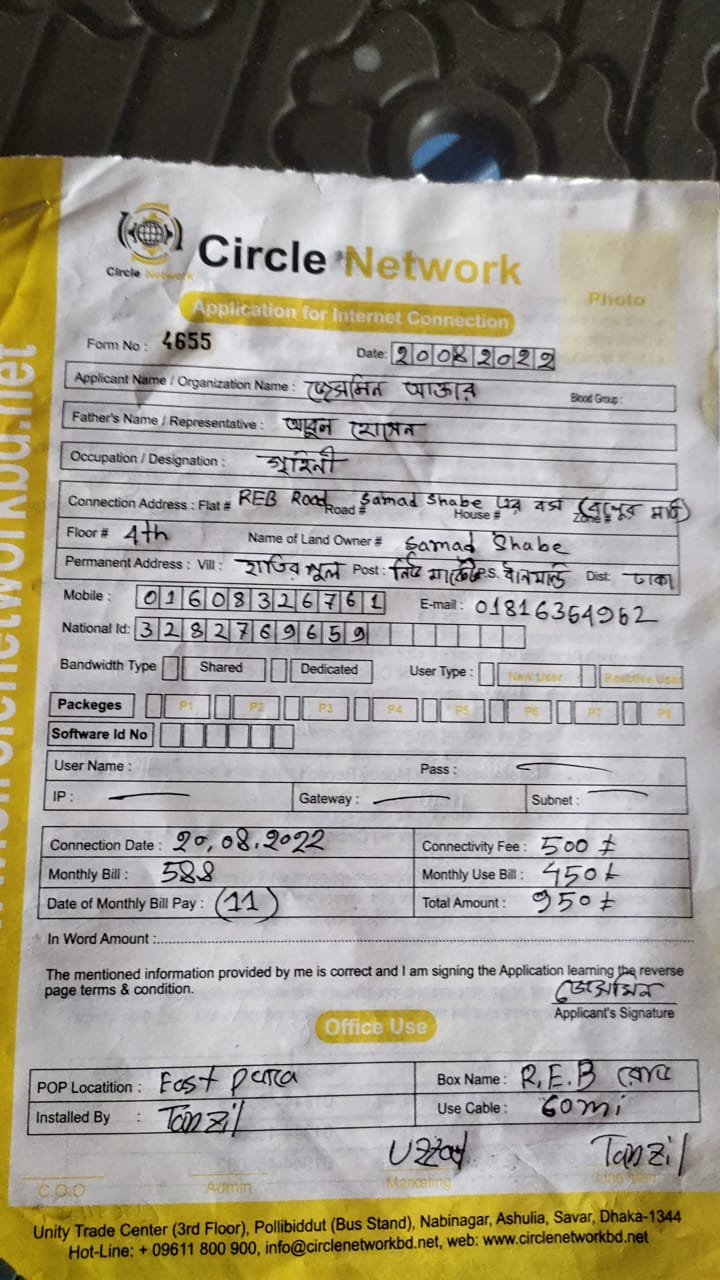 www.circlenetworkbd.net
Circle Network
Circle Network
Application for Internet Connection
Photo
Form No : 4655
Date: 20082022
Applicant Name / Organization Name : জেসমিন আক্তার Blood Group :
Father's Name / Representative : আবুল হোসেন
Occupation / Designation : গৃহিনী
Connection Address : Flat # REB Road Road # Samad Shabe এর বাসা House # Zone #
Floor # 4th Name of Land Owner # Samad Shabe
Permanent Address : Vill : হাতির পুল Post : নিউ মার্কেট P.S. ধানমন্ডি Dist: ঢাকা
Mobile : 01608326761 E-mail : 01816354962
National Id: 3282769659
Bandwidth Type Shared Dedicated User Type : New User
Packeges P1 P2 P3 P4 P5 P6 P7 P8
Software Id No
User Name : Pass :
IP : Gateway : Subnet :
Connection Date : 20,08.2022 Connectivity Fee : 500 ৳
Monthly Bill : 588 Monthly Use Bill : 450 ৳
Date of Monthly Bill Pay : (11) Total Amount : 950 ৳
In Word Amount :
The mentioned information provided by me is correct and I am signing the Application learning the reverse
page terms & condition.
জেসমিন
Applicant's Signature
Office Use
POP Locatition : East para Box Name : R.E.B
Installed By : Tanzil Use Cable : 60mi
Uzzal Tanzil
C.O.O Admin Marketing Line Man
Unity Trade Center (3rd Floor), Pollibiddut (Bus Stand), Nabinagar, Ashulia, Savar, Dhaka-1344
Hot-Line: + 09611 800 900, info@circlenetworkbd.net, web: www.circlenetworkbd.net